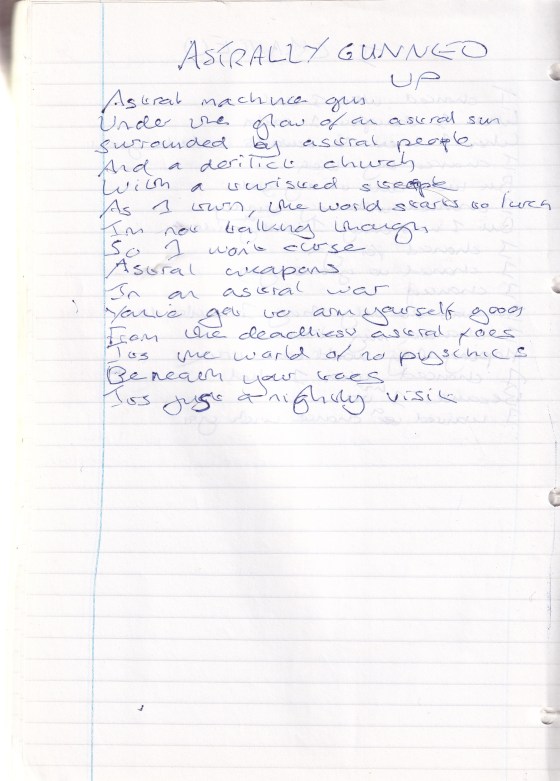 ASTRALLY GUNNED
UP
Astral machine gun
Under the glow of an astral sun
surrounded by astral people
And a derilict church
With a twisted steeple
As I turn, the world starts to lurch
I'm not talking though
So I won't curse
Astral weapons
In an astral war
You've got to arm yourself good
From the deadliest astral foes
Its the world of no pyschics
Beneath your toes
Its just a nightly visit